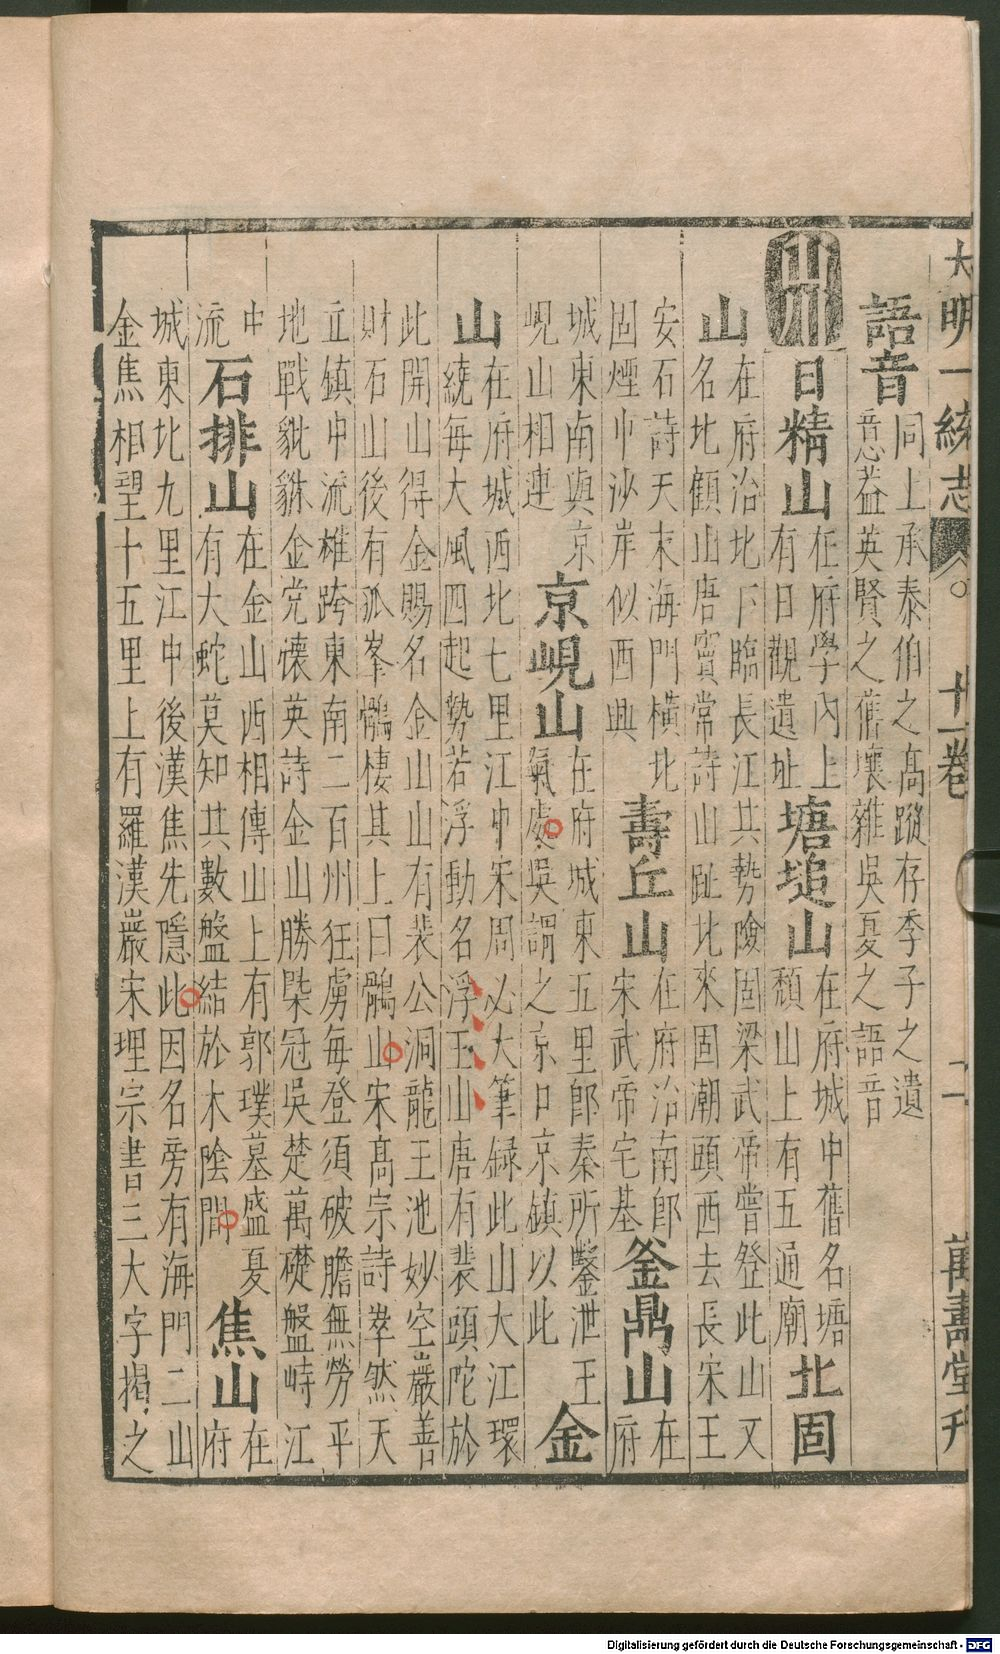 大明一統志 十一卷 萬壽堂刊
語音 同上承泰伯之高蹤存季子之遺
意蓋英賢之舊壤雜吳夏之語音
山川 日精山 在府學內上
有日觀遺址 塘塠山 在府城中舊名塘
頹山上有五通廟 北固
山 在府治北下臨長江其勢險固梁武帝嘗登此山又
名北顧山唐竇常詩山趾北來固潮頭西去長宋王
安石詩天末海門橫北
固煙中沙岸似西興 壽丘山 在府治南郎
宋武帝宅基 釜鼎山 在
府
城東南與京
峴山相連 京峴山 在府城東五里郎秦所鑿泄王
氣處吳謂之京口京鎮以此 金
山 在府城西北七里江中宋周必大筆録此山大江環
繞每大風四起勢若浮動名浮玉山唐有裴頭陀於
此開山得金賜名金山山有裴公洞龍王池妙空巖善
財石山後有孤峯鶻棲其上曰鶻山宋高宗詩崒然天
立鎮中流雄跨東南二百州狂虜每登須破膽無勞平
地戰貔貅金党懷英詩金山勝槩冠吳楚萬礎盤峙江
中
流 石排山 在金山西相傳山上有郭璞墓盛夏
有大蛇莫知其數盤結於木陰間 焦山 在
府
城東北九里江中後漢焦先隱此因名旁有海門二山
金焦相望十五里上有羅漢巖宋理宗書三大字揭之
Digitalisierung gefördert durch die Deutsche Forschungsgemeinschaft - DFG